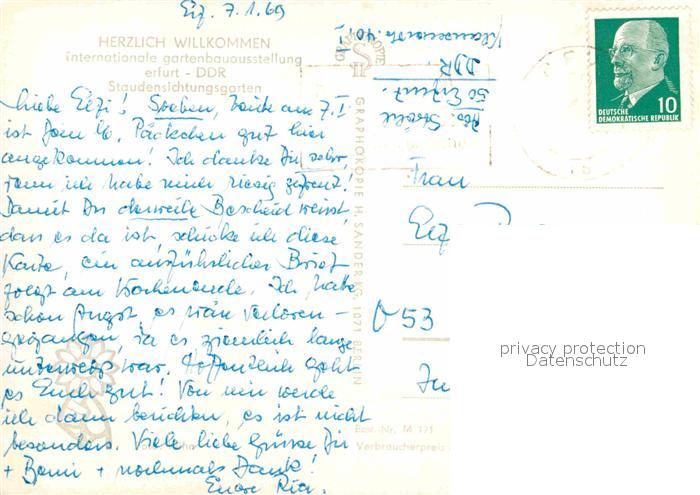 Eiz. 7.1.69
HERZLICH WILLKOMMEN
internationale gartenbauausstellung
erfurt - DDR
Staudensichtungsgarten
Liebe Eizi! Soeben, heute am 7.I.
ist Dein lb. Päckchen gut hier
angekommen! Ich danke Dir sehr,
denn ich habe mich riesig gefreut!
Damit Du derweile Bescheid weisst,
dass es da ist, schicke ich diese
Karte, ein ausführlicher Brief
folgt am Wochenende. Ich hatte
schon Angst, es wäre verloren-
gegangen, da es ziemlich lange
unterwegs war. Hoffentlich geht
es Euch gut! Von mir werde
ich dann berichten, es ist nicht
besonders. Viele liebe Grüsse Dir
+ Bami + nochmals Dank!
Eure Ria.
GRAPHOKOPIE H. SANDER KG, 1071 BERLIN
Best.-Nr. M 171
Verbraucherpreis
GRAPHOKOPIE
H S
DDR.
50 Erfurt.
DEUTSCHE
DEMOKRATISCHE REPUBLIK
10
Frau
Eiz
O 53
In
privacy protection
Datenschutz